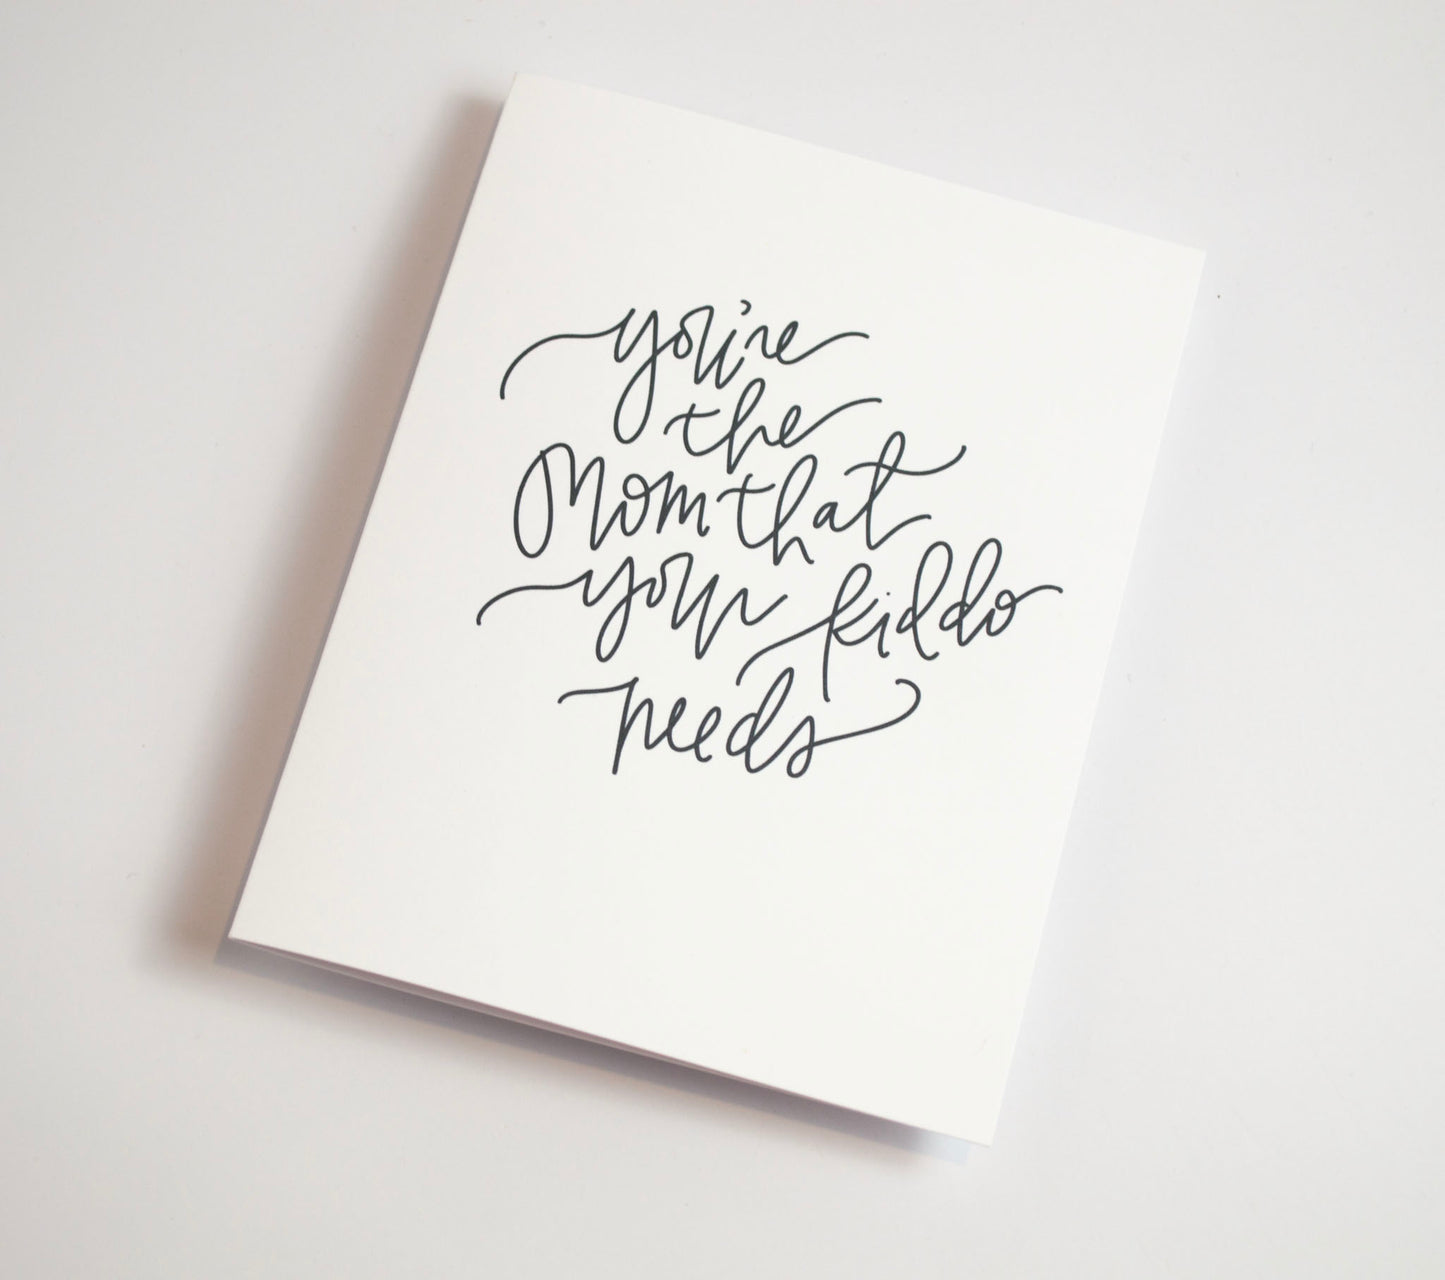 you're
the
Mom that
your kiddo
needs